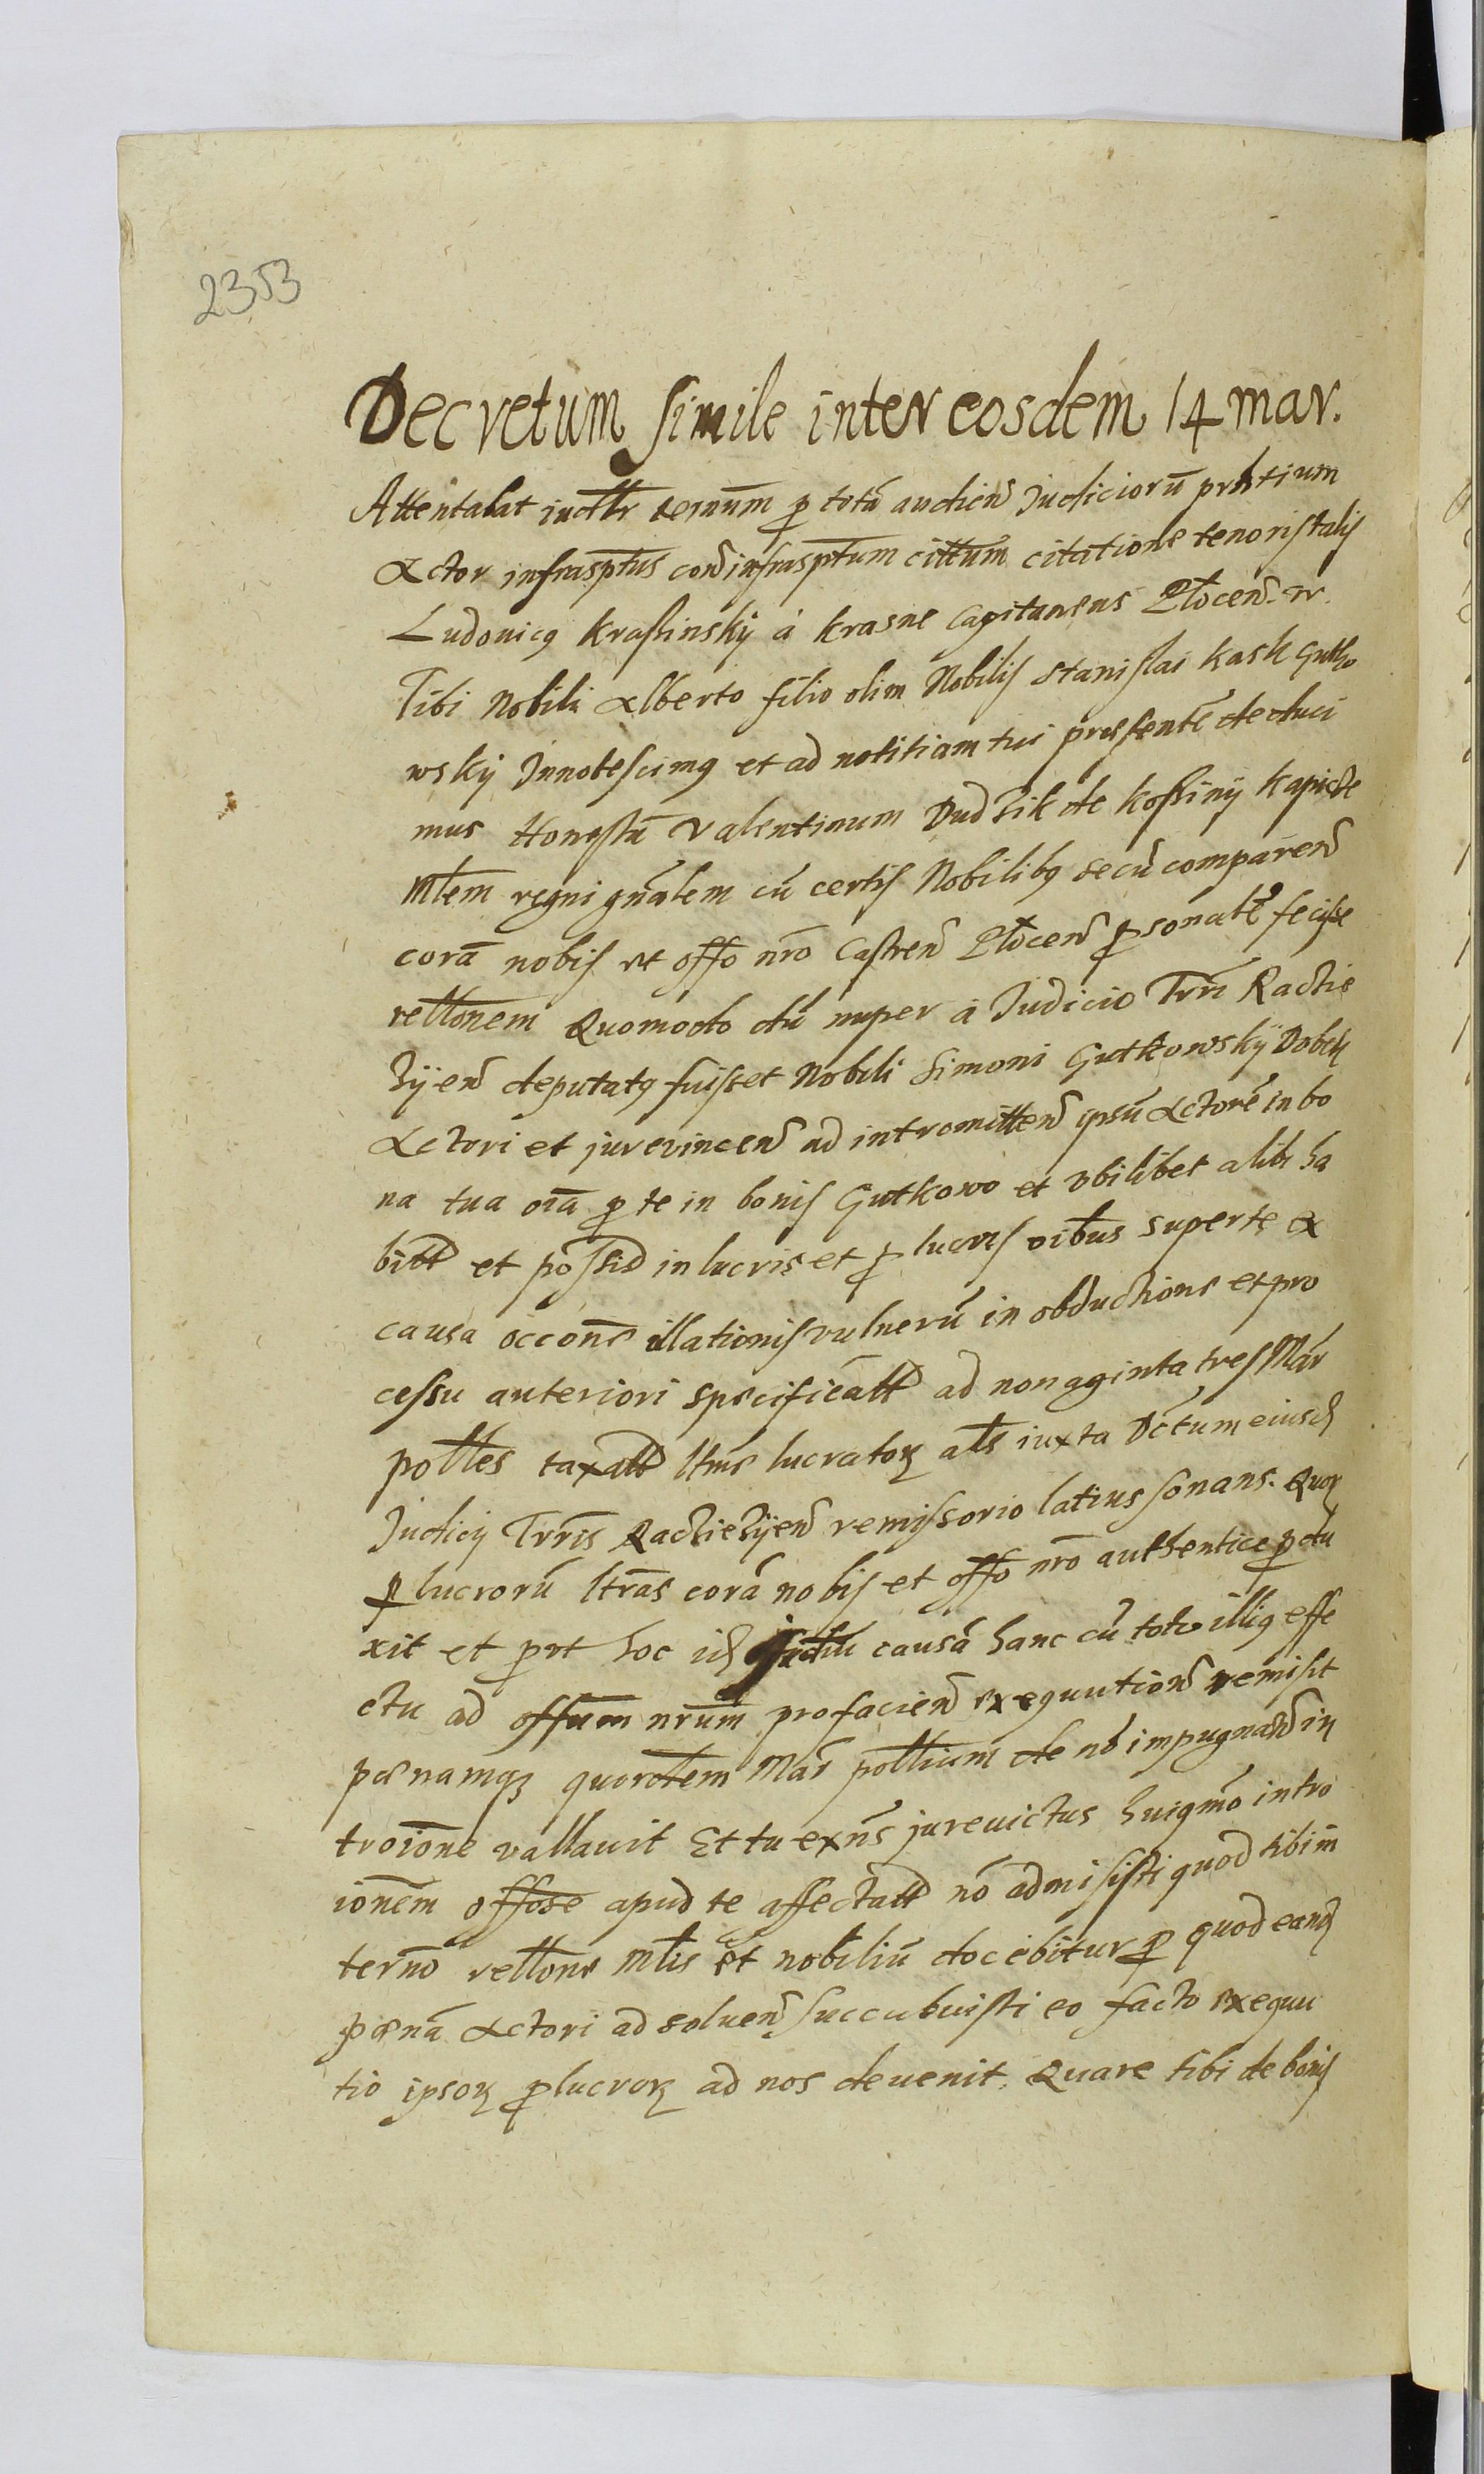 2353
Decretum simile inter eosdem 14 mar.
Attentabat iudlr termm̄ p totā audien̄ Judiciorū pr̄ntium
Actor infrasp̄tus con̄ infrasp̄tum cittum citatione tenoris talis
Ludovicq Krassinskÿ á krasne Capitaneus Plocen̄. rr.
Tibi Nobili Alberto filio olim Nobilis Stanislai kask Gutko
wskÿ Innotescimq et ad notitiam tui presentē deduci
mus Honestū Valentinum Dudzik de kossinÿ kapicze
mltem regni gnālem cū certis Nobilibq secū comparen̄
corā nobis et offo nr̄o Castren̄ Plocen̄ psonalr̄ fecisse
reltonem Quomodo dū nuper á Judicio Trr̄i Raczie
zÿen̄ deputatq fuisset Nobili Simoni Gutkowskÿ Dobek
Actori et jurevincen̄ ad intromitten̄ ipsū Actorē in bo
na tua oiā p te in bonis Gutkowo et vbilibet alibi ha
bitt et possid in lucris et p lucris oibus super te ex
causa occone illationis vulnerū in obductione et pro
cessu anteriori specificātt ad nonaginta tres Mār
poltles taxatt ltime lucratoꝝ als iuxta Dctum eiusd
Judicij Trr̄is Racziezÿen̄ remissorio latius sonans. Quoꝝ
p lucrorū ltrās corā nobis et offo nr̄o authentice pdu
xit et prt hoc id Judiu causā hanc cū toto illiq effe
ctu ad offum nr̄um pro facien̄ exequution̄ remisit
pœnamqꝫ quordem Mār poltium de nō impugnan̄ in
troione vallavit Et tu exn̄s jurevictus huiqmō intro
ionem offose apud te affectatt nō admisisti quod tibi in
termo reltone Mltis et nobiliū docebitur p quod eand
pœnā Actori ad soluen̄ succubuisti eo facto exequu
tio ipsoꝝ plucroꝝ ad nos devenit. Quare tibi de bonis